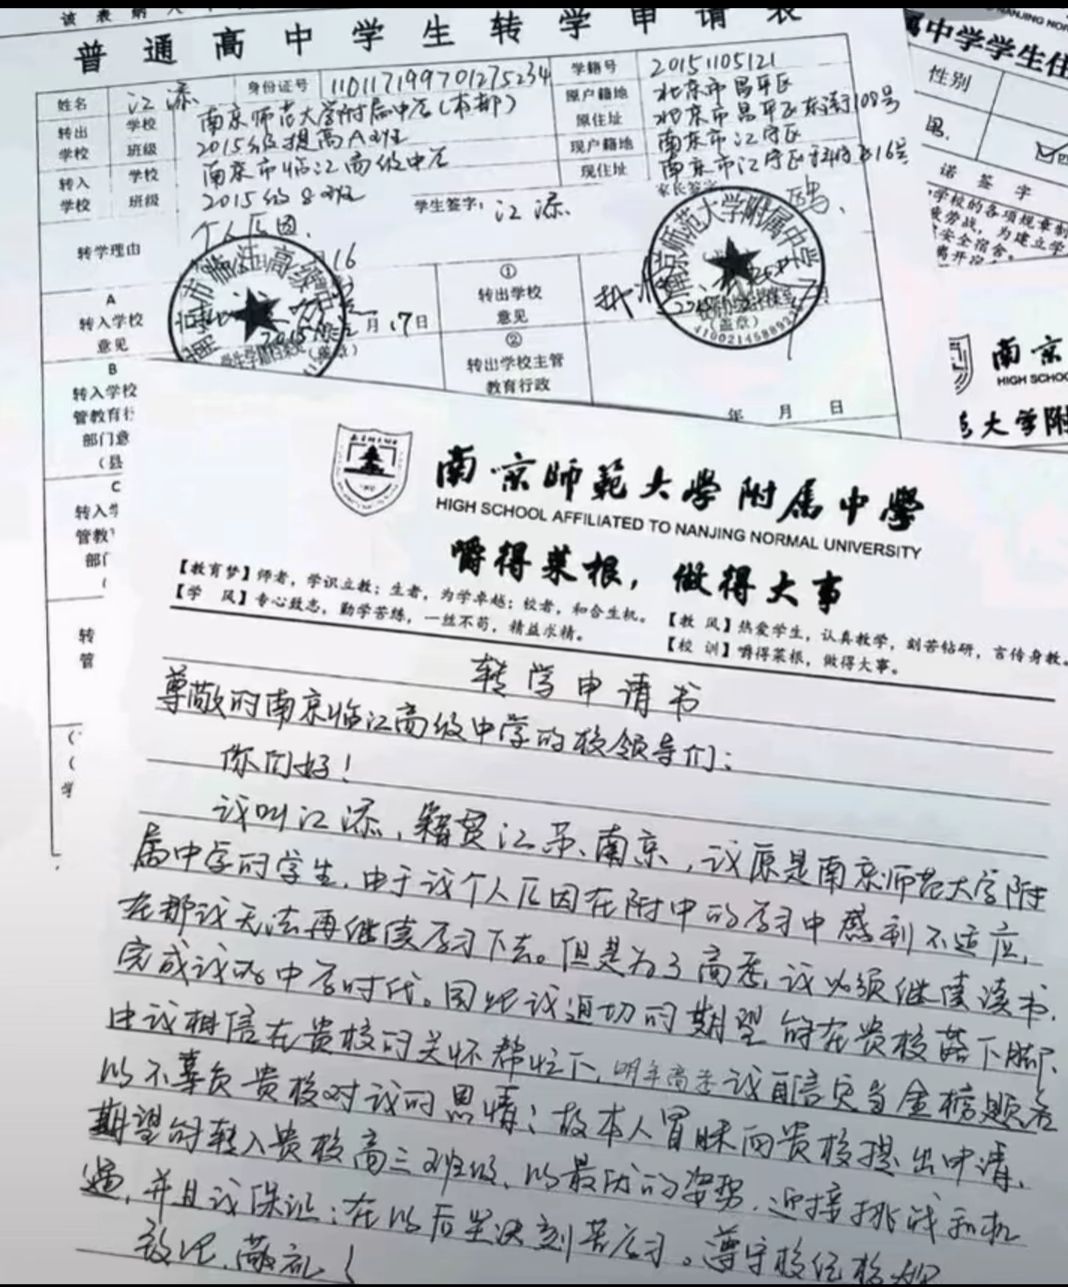 该表纳入
普通高中学生转学申请表
姓名 江添 身份证号 110117199701275234 学籍号 20151105121
转出学校 学校 南京师范大学附属中学(本部) 原户籍地 北京市昌平区
班级 2015级提高A班 原住址 北京市昌平区东诗门108号
转入学校 学校 南京市临江高级中学 现户籍地 南京市江宁区
班级 2015级8班 现住址 南京市江宁区 816号
学生签字: 江添 家长签字
转学理由 个人原因.
A 转入学校意见 月17日
① 转出学校意见
南京师范大学附属中学
(盖章)
② 转出学校主管教育行政
年 月 日
B
转入学校
管教育行
部门意
(县
C
转入学
管教
部门
转
管
中学学生住
性别
诺 签 字
学校的各项规章制
被劳战,为建立学
安全宿舍。
离开应
南京
HIGH SCHOO
大学附
南京师範大学附属中學
HIGH SCHOOL AFFILIATED TO NANJING NORMAL UNIVERSITY
嚼得菜根,做得大事
【教育梦】师者,学识立教;生者,为学卓越;校者,和合生机。
【教 风】热爱学生,认真教学,刻苦钻研,言传身教。
【学 风】专心致志,勤学苦练,一丝不苟,精益求精。
【校 训】嚼得菜根,做得大事。
转学申请书
尊敬的南京临江高级中学的校领导们:
你们好!
我叫江添,籍贯江苏、南京,我原是南京师范大学附
属中学的学生,由于我个人原因在附中的学习中感到不适应,
在那我无法再继续学习下去。但是为了高考,我必须继续读书,
完成我的中学时代。因此我迫切的期望的在贵校落下脚,
由我相信在贵校的关怀帮忙下,明年高考我自信定当金榜题名
以不辜负贵校对我的恩情;故本人冒昧向贵校提出申请,
期望的转入贵校高三班级,以最优的姿势,迎接挑战和机
遇,并且我保证:在以后坚决刻苦学习。遵守校纪校规
致此,敬礼!